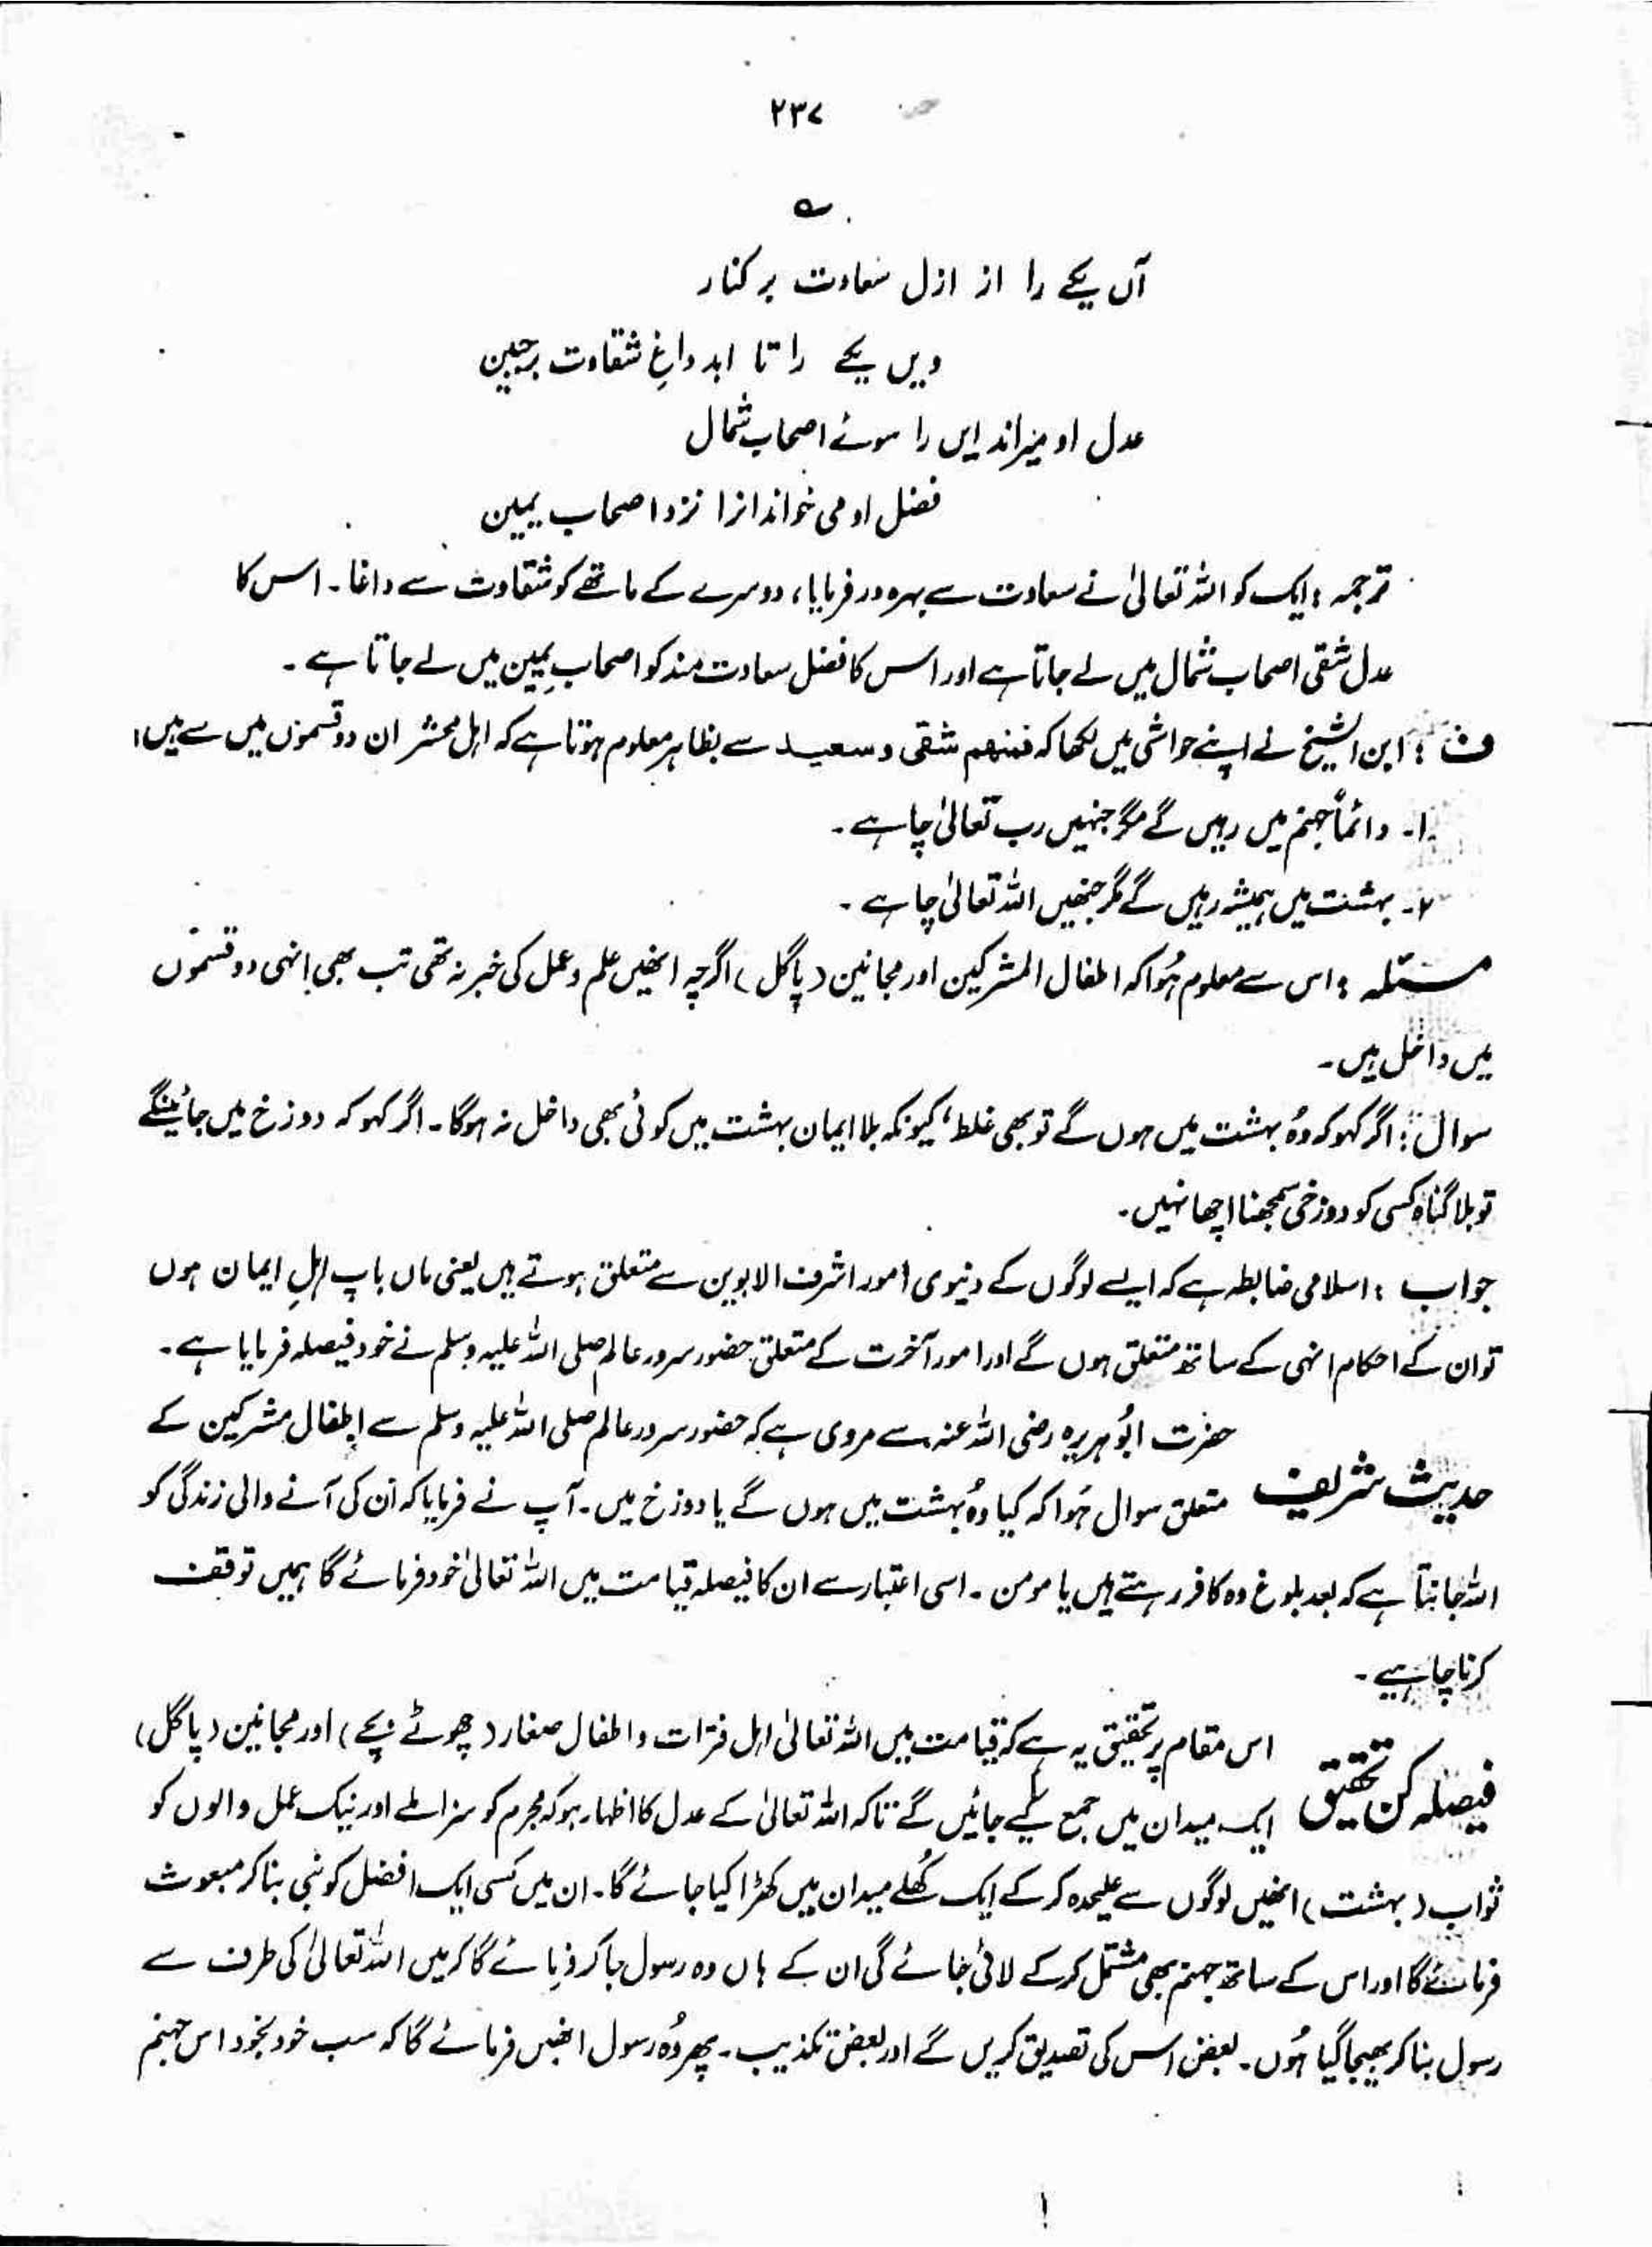 ۲۳۷
؎
آں یکے را از ازل سعادت بر کنار
ویں یکے را تا ابد داغِ شقاوت برجبین
عدل او میراند ایں را سوئے اصحاب شمال
فضل او می خواند انرا نزد اصحاب یمین
ترجمہ : ایک کو اللہ تعالیٰ نے سعادت سے بہرہ ور فرمایا، دوسرے کے ماتھے کو شقاوت سے داغا۔ اس کا
عدل شقی اصحاب شمال میں لے جاتا ہے اور اس کا فضل سعادت مند کو اصحابِ یمین میں لے جاتا ہے۔
ف : ابن الشیخ نے اپنے حواشی میں لکھا کہ فمنهم شقی وسعید سے بظاہر معلوم ہوتا ہے کہ اہل محشر ان دو قسموں میں سے ہیں:
۱۔ دائماً جہنم میں رہیں گے مگر جنہیں رب تعالیٰ چاہے۔
۲۔ بہشت میں ہمیشہ رہیں گے مگر جنھیں اللہ تعالیٰ چاہے۔
مسئلہ : اس سے معلوم ہُوا کہ اطفال المشرکین اور مجانین (پاگل) اگرچہ انھیں علم و عمل کی خبر نہ تھی تب بھی انہی دو قسموں
میں داخل ہیں۔
سوال : اگر کہو کہ وُہ بہشت میں ہوں گے تو بھی غلط، کیونکہ بلا ایمان بہشت میں کوئی بھی داخل نہ ہوگا۔ اگر کہو کہ دوزخ میں جائینگے
تو بلا گناہ کسی کو دوزخی سمجھنا اچھا نہیں۔
جواب : اسلامی ضابطہ ہے کہ ایسے لوگوں کے دنیوی امور اشرف الابوین سے متعلق ہوتے ہیں یعنی ماں باپ اہلِ ایمان ہوں
تو ان کے احکام انہی کے ساتھ متعلق ہوں گے اور امور آخرت کے متعلق حضور سرور عالم صلی اللہ علیہ وسلم نے خود فیصلہ فرمایا ہے۔
حضرت ابُوہریرہ رضی اللہ عنہ سے مروی ہے کہ حضور سرور عالم صلی اللہ علیہ وسلم سے اطفال مشرکین کے
حدیث شریف متعلق سوال ہُوا کہ کیا وُہ بہشت میں ہوں گے یا دوزخ میں۔ آپ نے فرمایا کہ ان کی آنے والی زندگی کو
اللہ جانتا ہے کہ بعد بلوغ وہ کافر رہتے ہیں یا مومن۔ اسی اعتبار سے ان کا فیصلہ قیامت میں اللہ تعالیٰ خود فرمائے گا ہمیں توقف
کرنا چاہیے۔
اس مقام پر تحقیق یہ ہے کہ قیامت میں اللہ تعالیٰ اہل فترات و اطفال صغار (چھوٹے بچے) اور مجانین (پاگل)
فیصلہ کن تحقیق ایک میدان میں جمع کیے جائیں گے تاکہ اللہ تعالیٰ کے عدل کا اظہار ہو کہ مجرم کو سزا ملے اور نیک عمل والوں کو
ثواب (بہشت) انھیں لوگوں سے علیحدہ کر کے ایک کُھلے میدان میں کھڑا کیا جائے گا۔ ان میں کسی ایک افضل کو نبی بنا کر مبعوث
فرمائے گا اور اس کے ساتھ جہنم بھی مشتمل کر کے لائی جائے گی ان کے ہاں وہ رسول جا کر فرمائے گا کہ میں اللہ تعالیٰ کی طرف سے
رسول بنا کر بھیجا گیا ہُوں۔ بعض اس کی تصدیق کریں گے اور بعض تکذیب۔ پھر وُہ رسول انھیں فرمائے گا کہ سب خود بخود اس جہنم